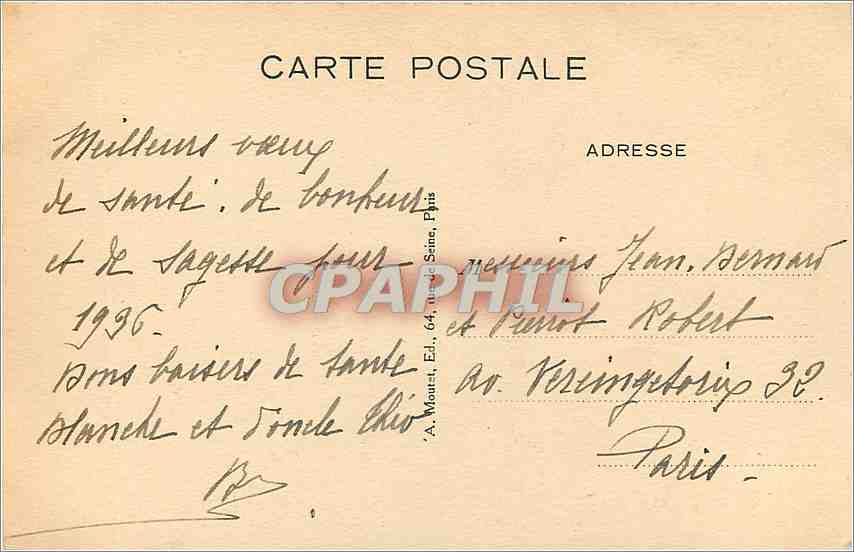 CARTE POSTALE
Meilleurs vœux
de santé. de bonheur
et de sagesse pour
1936.
Bons baisers de tante
Blanche et d'oncle Théo
A. Moutet, Ed., 64, rue de Seine, Paris
ADRESSE
Messieurs Jean. Bernard
et Pierrot Robert
Av. Vercingetorix 32.
Paris.
CPAPHIL